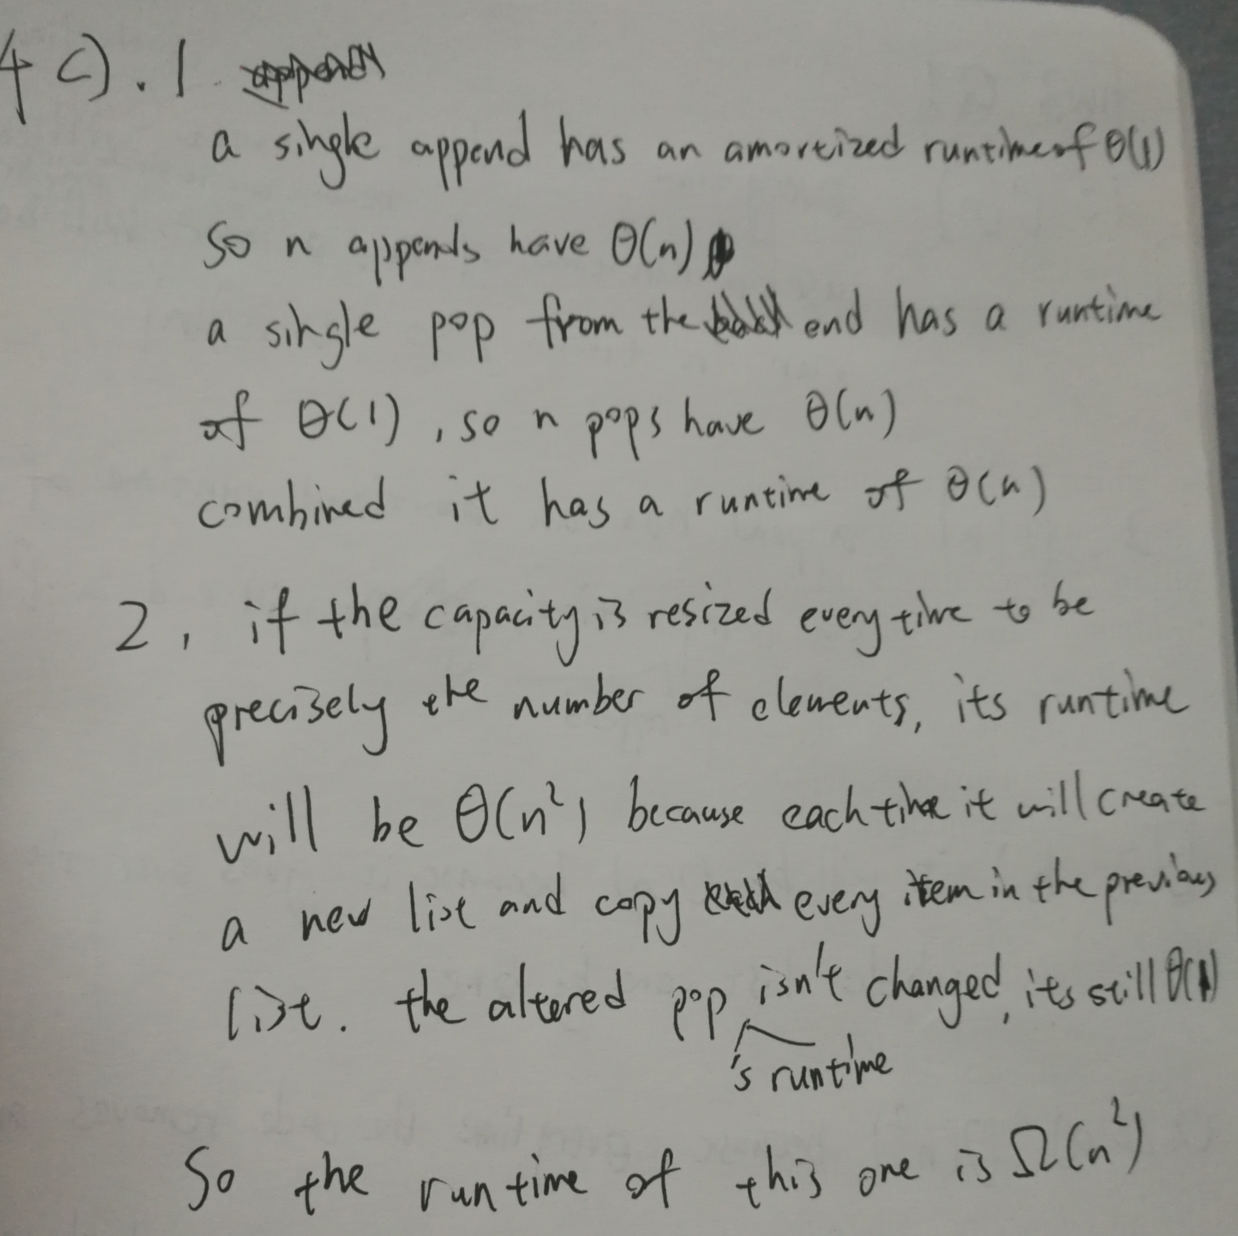 4 c). 1
a single append has an amortized runtime of θ(1)
So n appends have θ(n)
a single pop from the end has a runtime
of θ(1), so n pops have θ(n)
combined it has a runtime of θ(n)
2, if the capacity is resized every time to be
precisely the number of elements, its runtime
will be θ(n²) because each time it will create
a new list and copy every item in the previous
list. the altered pop isn't changed, its still θ(1)
's runtime
So the runtime of this one is Ω(n²)